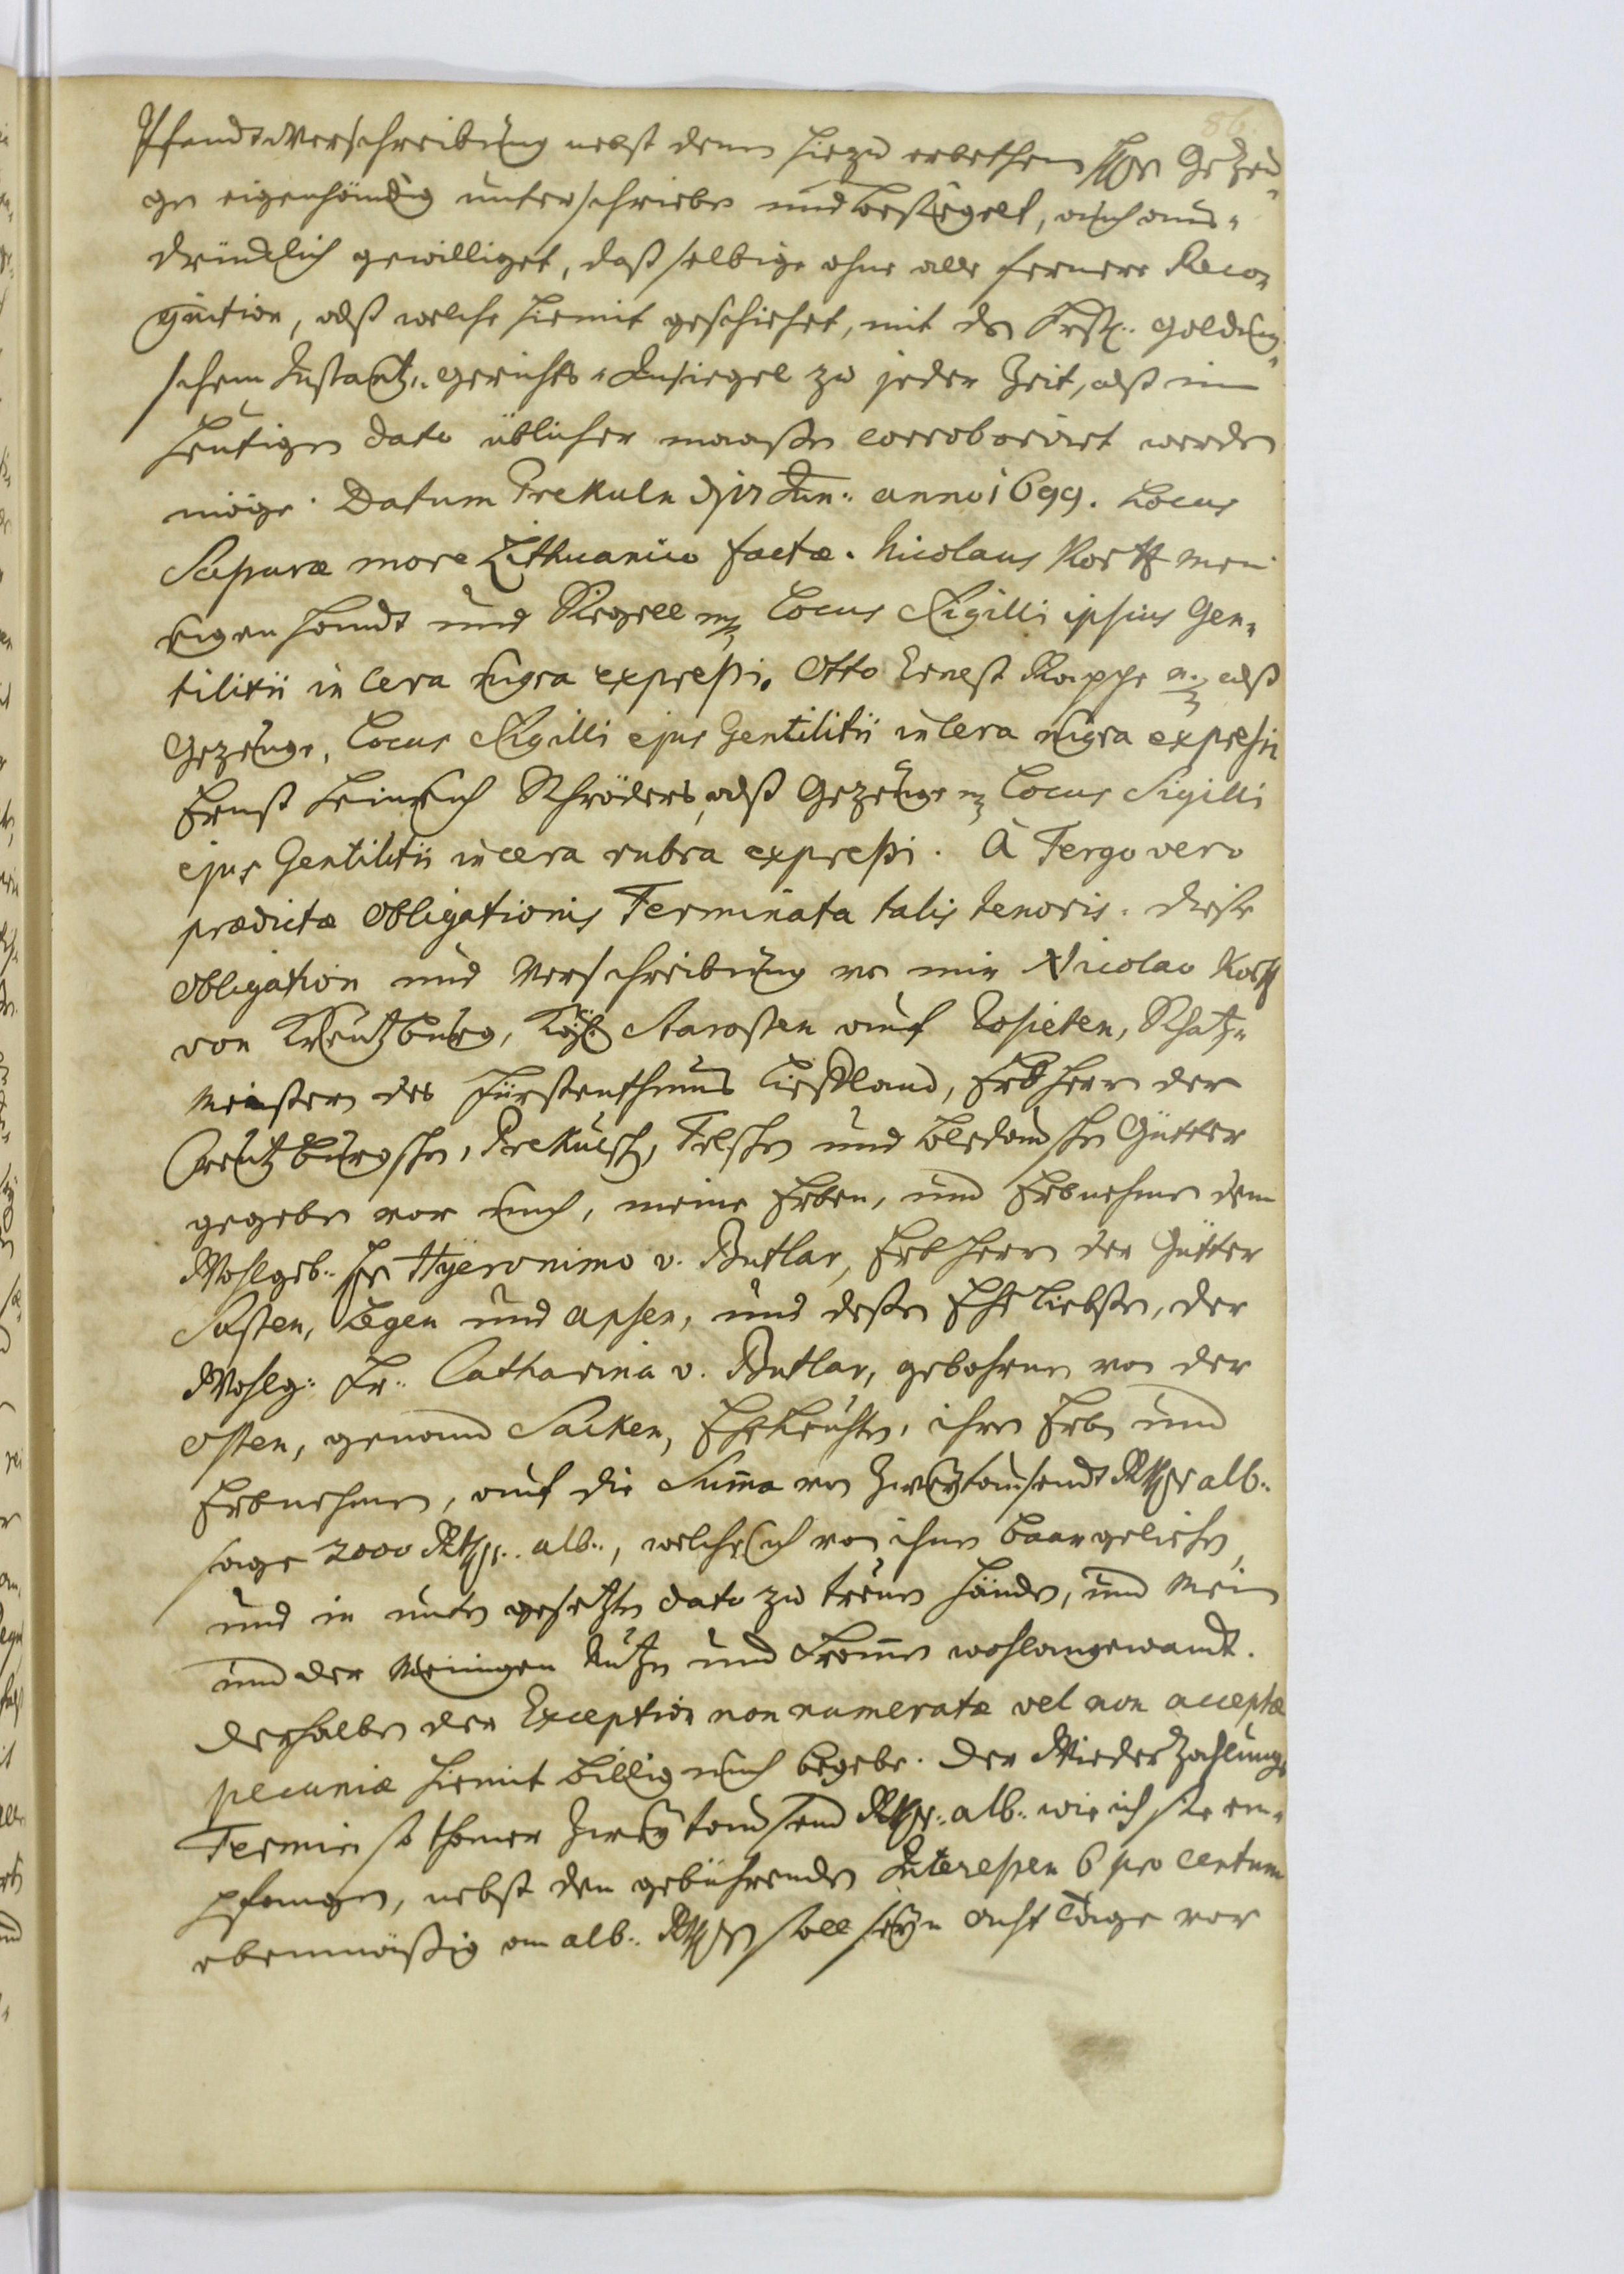 86.
Pfandtverschreibung nebst denen hiezu erbethen HHrn Gezeu„
gen eigenhändig unterschrieben und besiegelt, auch aus„
drücklich gewilliget, daß selbige ohne alle fernere Reco„
gnition, alß welche hiemit geschiehet, mit den Frstl. goldin„
schem Instantz„ gerichts„Insiegel zu jeder Zeit, alß im
heutigen dato üblicher maaßen corroboriret werden
möge. Datum PreKuln d 12 Jun: anno 1699. Locus
Scipuræ more Lithuanico factæ. Nicolaus Korff mein
eigen Handt und Siegell mp Locus Sigilli ipsius Gen„
tilitii in cera nigra expressi. Otto Ernest Rappe alß
Gezeuge, Locus Sigilli ejus Gentilitii in cera nigra expressi
Ernst Heinrich Schröders, alß Gezeuge Locus Sigilli
ejus Gentilitii in cera rubra expressi. À Tergo vero
prædictæ obligationis Terminata talis tenoris. diese
obligation und Verschreibung von mir Nicolao Korff
von Kreutzburg, Kögl Starosten auf Rosieten, Schatz„
meistern des Fürstenthums Lieffland, Erbherrn der
Creutzburgschen, PreKulsch, Telschen und Ger
gegeben vor mich, meine Erben, und Erbnehmen dem
Wohlgeb. Hrn Hyeronimo v. Butlar, Erbherrn der Gütter
Sasten, Legen und apsen, und deßen EheLiebsten, der
Wohlg: Fr. Catharina v. Butlar, gebohrnen von der
Osten, genand Sacken, EheLeuthen, ihren Erben und
Erbnehmen, auf die Suma von Zweytausendt Rthlr alb.
sage 2000 Rthlr. alb., welche ich von ihnen baar geliehen,
und in unten gesetzten dato zu treuen Händen, und Mein
und der Meinigen Nutzen und Fromen wohlangewandt.
derhalben der Exception non numeratæ vel non acceptæ
pecuniæ hiemit billig mich begebe. Der Wieder Zahlungs
Termin so thaner Zwey tausend Rthlr. alb. wie ich sie em„
pfangen, nebst den gebührenden Interessen 6 pro centum
ebenmäßig an alb. Rthlrn soll seyn acht Tage vor